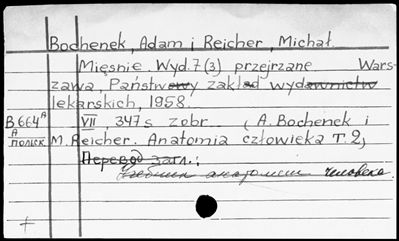 Bochenek, Adam i Reicher, Michał.
Mięśnie. Wyd. 7(3) przejrzane Wars-
zawa, Państwowy zakład wydawnictw
lekarskich, 1958.
B664ᴬ VII 347 s zobr. (A. Bochenek i
А польск M. Reicher. Anatomia człowieka T. 2)
Перевод загл.:
Учебник анатомии человека.